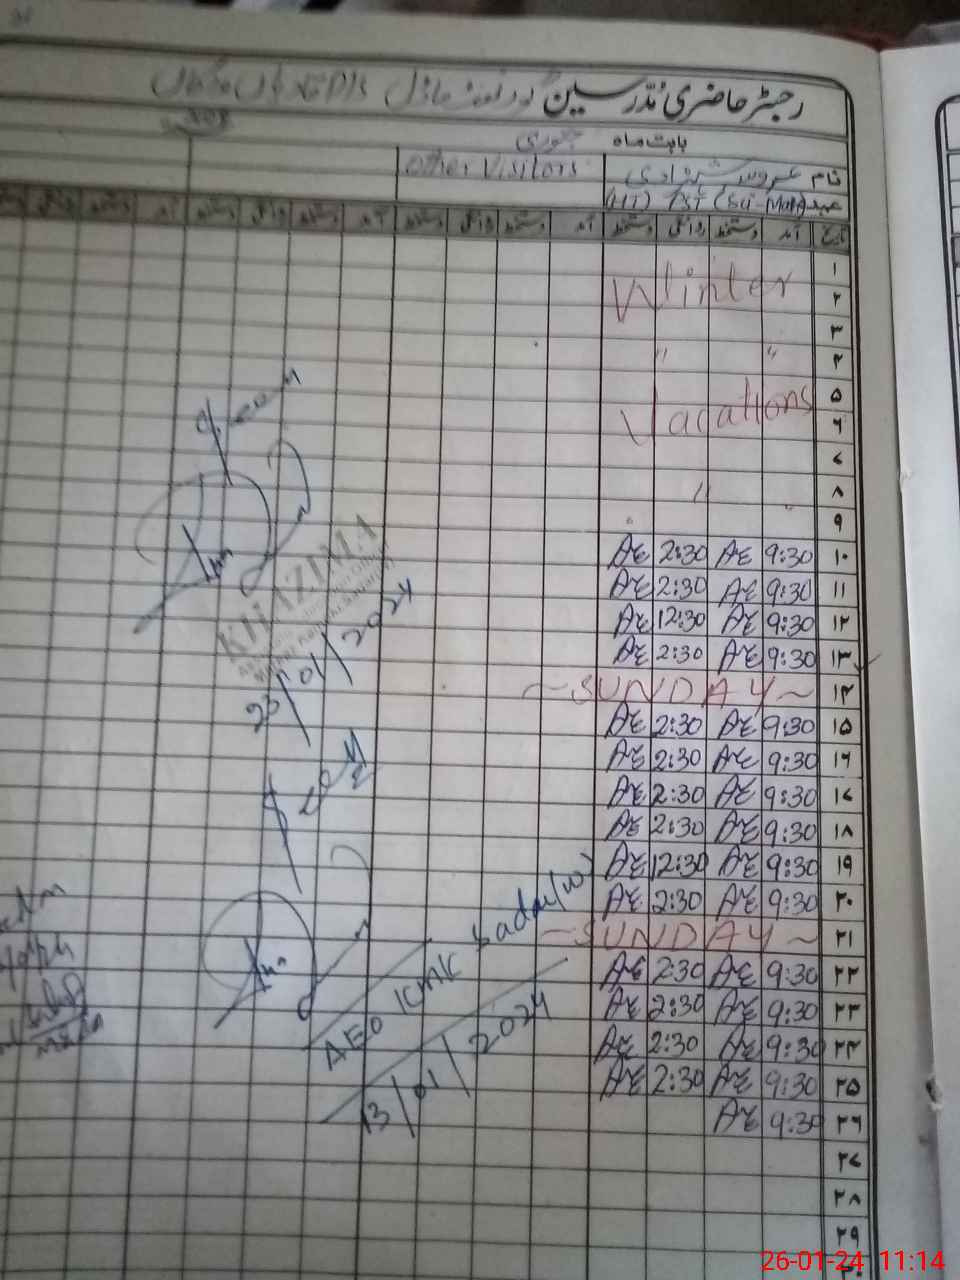 رجسٹر حاضری مدرسین گورنمنٹ ماڈل
بابت ماہ جنوری
نام
Other Visitors
عہدہ (HT) PST (Sci-Math)
تاریخ آمد دستخط روانگی دستخط آمد دستخط روانگی دستخط آمد دستخط روانگی دستخط آمد دستخط روانگی
۱
۲ Winter
۳
۴ " "
۵
۶ Vacations
۷
۸ "
۹
۱۰ 9:30 AE 2:30 AE
۱۱ 9:30 AE 2:30 AE
۱۲ 9:30 AE 12:30 AE
۱۳ 9:30 AE 2:30 AE
۱۴ ~SUNDAY~
۱۵ 9:30 AE 2:30 AE
۱۶ 9:30 AE 2:30 AE
۱۷ 9:30 AE 2:30 AE
۱۸ 9:30 AE 2:30 AE
۱۹ 9:30 AE 12:30 AE
۲۰ 9:30 AE 2:30 AE
۲۱ ~SUNDAY~
۲۲ 9:30 AE 2:30 AE
۲۳ 9:30 AE 2:30 AE
۲۴ 9:30 AE 2:30 AE
۲۵ 9:30 AE 2:30 AE
۲۶ 9:30 AE
۲۷
۲۸
۲۹
۳۰
KHAZIMA
23/01/2024
AEO KMK Sadar (W)
13/01/2024
26-01-24 11:14